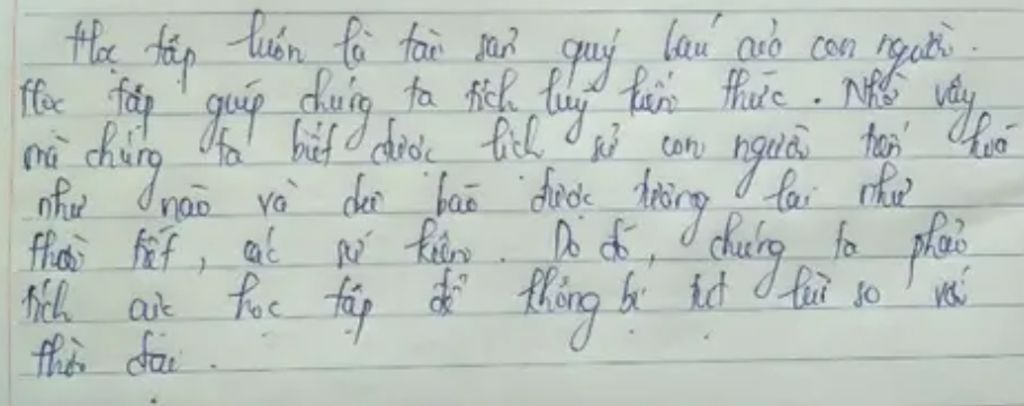 Học tập luôn là tài sản quý báu của con người.
Học tập giúp chúng ta tích luỹ kiến thức. Nhờ vậy
mà chúng ta biết được lịch sử con người tiến hoá
như nào và dự báo được tương lai như
thời tiết, các sự kiện. Do đó, chúng ta phải
tích cực học tập để không bị tụt lùi so với
thời đại.